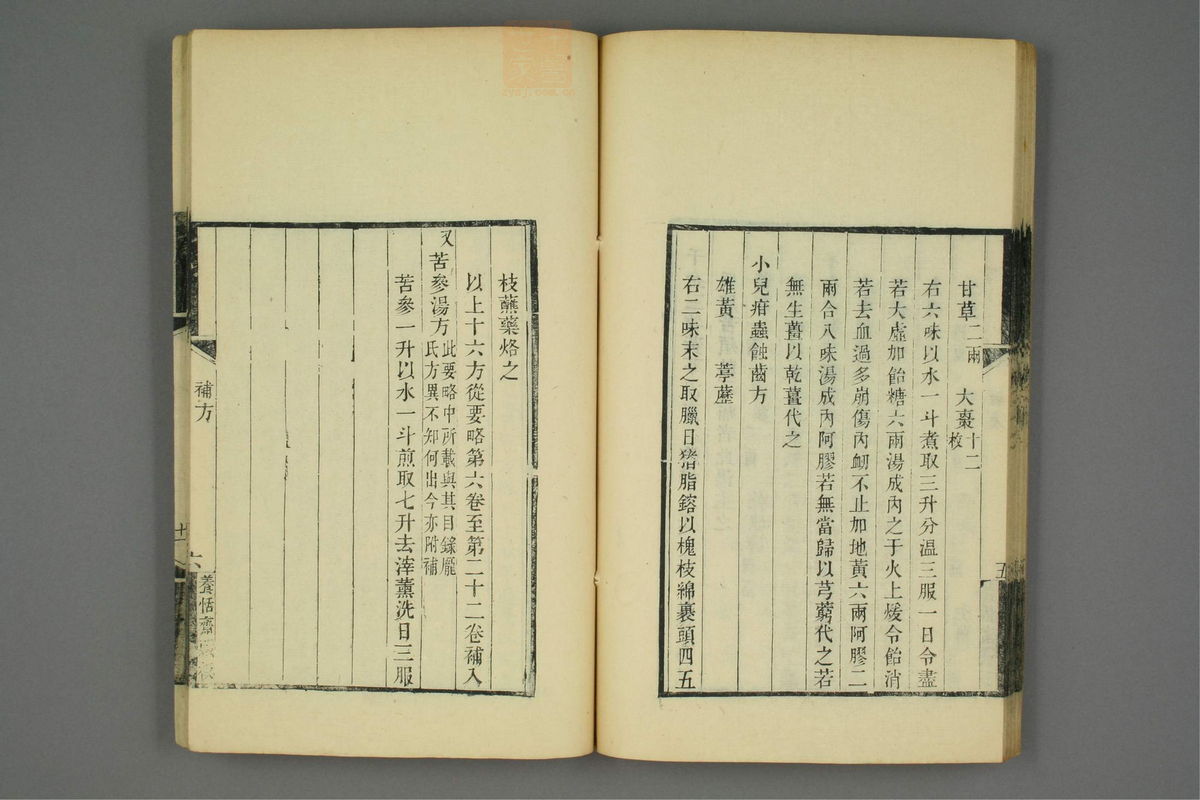 甘草二兩　大棗十二枚
右六味以水一斗煮取三升分溫三服一日令盡
若大虛加飴糖六兩湯成內之于火上煖令飴消
若去血過多崩傷內衂不止加地黃六兩阿膠二
兩合八味湯成內阿膠若無當歸以芎藭代之若
無生薑以乾薑代之
小兒疳蟲蝕齒方
雄黃　葶藶
右二味末之取臘日猪脂鎔以槐枝綿裹頭四五
五
枝蘸藥烙之
以上十六方從要略第六卷至第二十二卷補入
又苦參湯方此要略中所載與其目錄龐
氏方異不知何出今亦附補
苦參一升以水一斗煎取七升去滓薰洗日三服
補方
六
養恬齋
zysj.com.cn